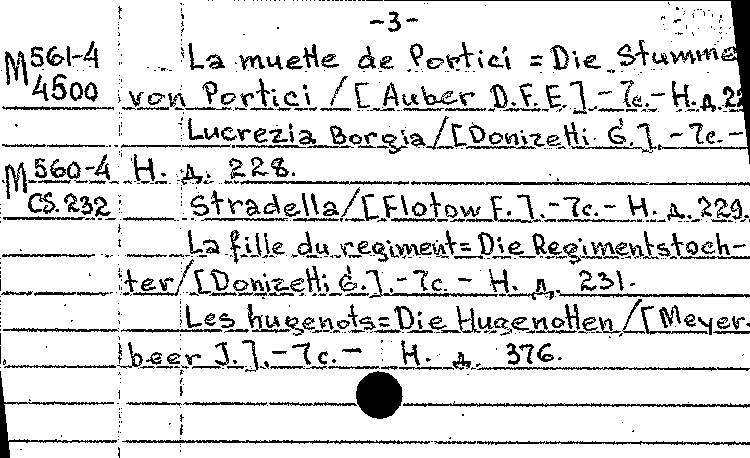 -3-
M 561-4 La muette de Portici = Die Stumme
4500 von Portici / [Auber D.F.E.]. - 7с. - Н. д. 22
Lucrezia Borgia / [Donizetti G.]. - 7с. -
M 560-4 Н. д. 228.
CS. 232 Stradella / [Flotow F.]. - 7с. - Н. д. 229.
La fille du regiment = Die Regimentstoch-
ter / [Donizetti G.]. - 7с. - Н. д. 231.
Les hugenots = Die Hugenotten / [Meyer-
beer J.]. - 7с. - Н. д. 376.